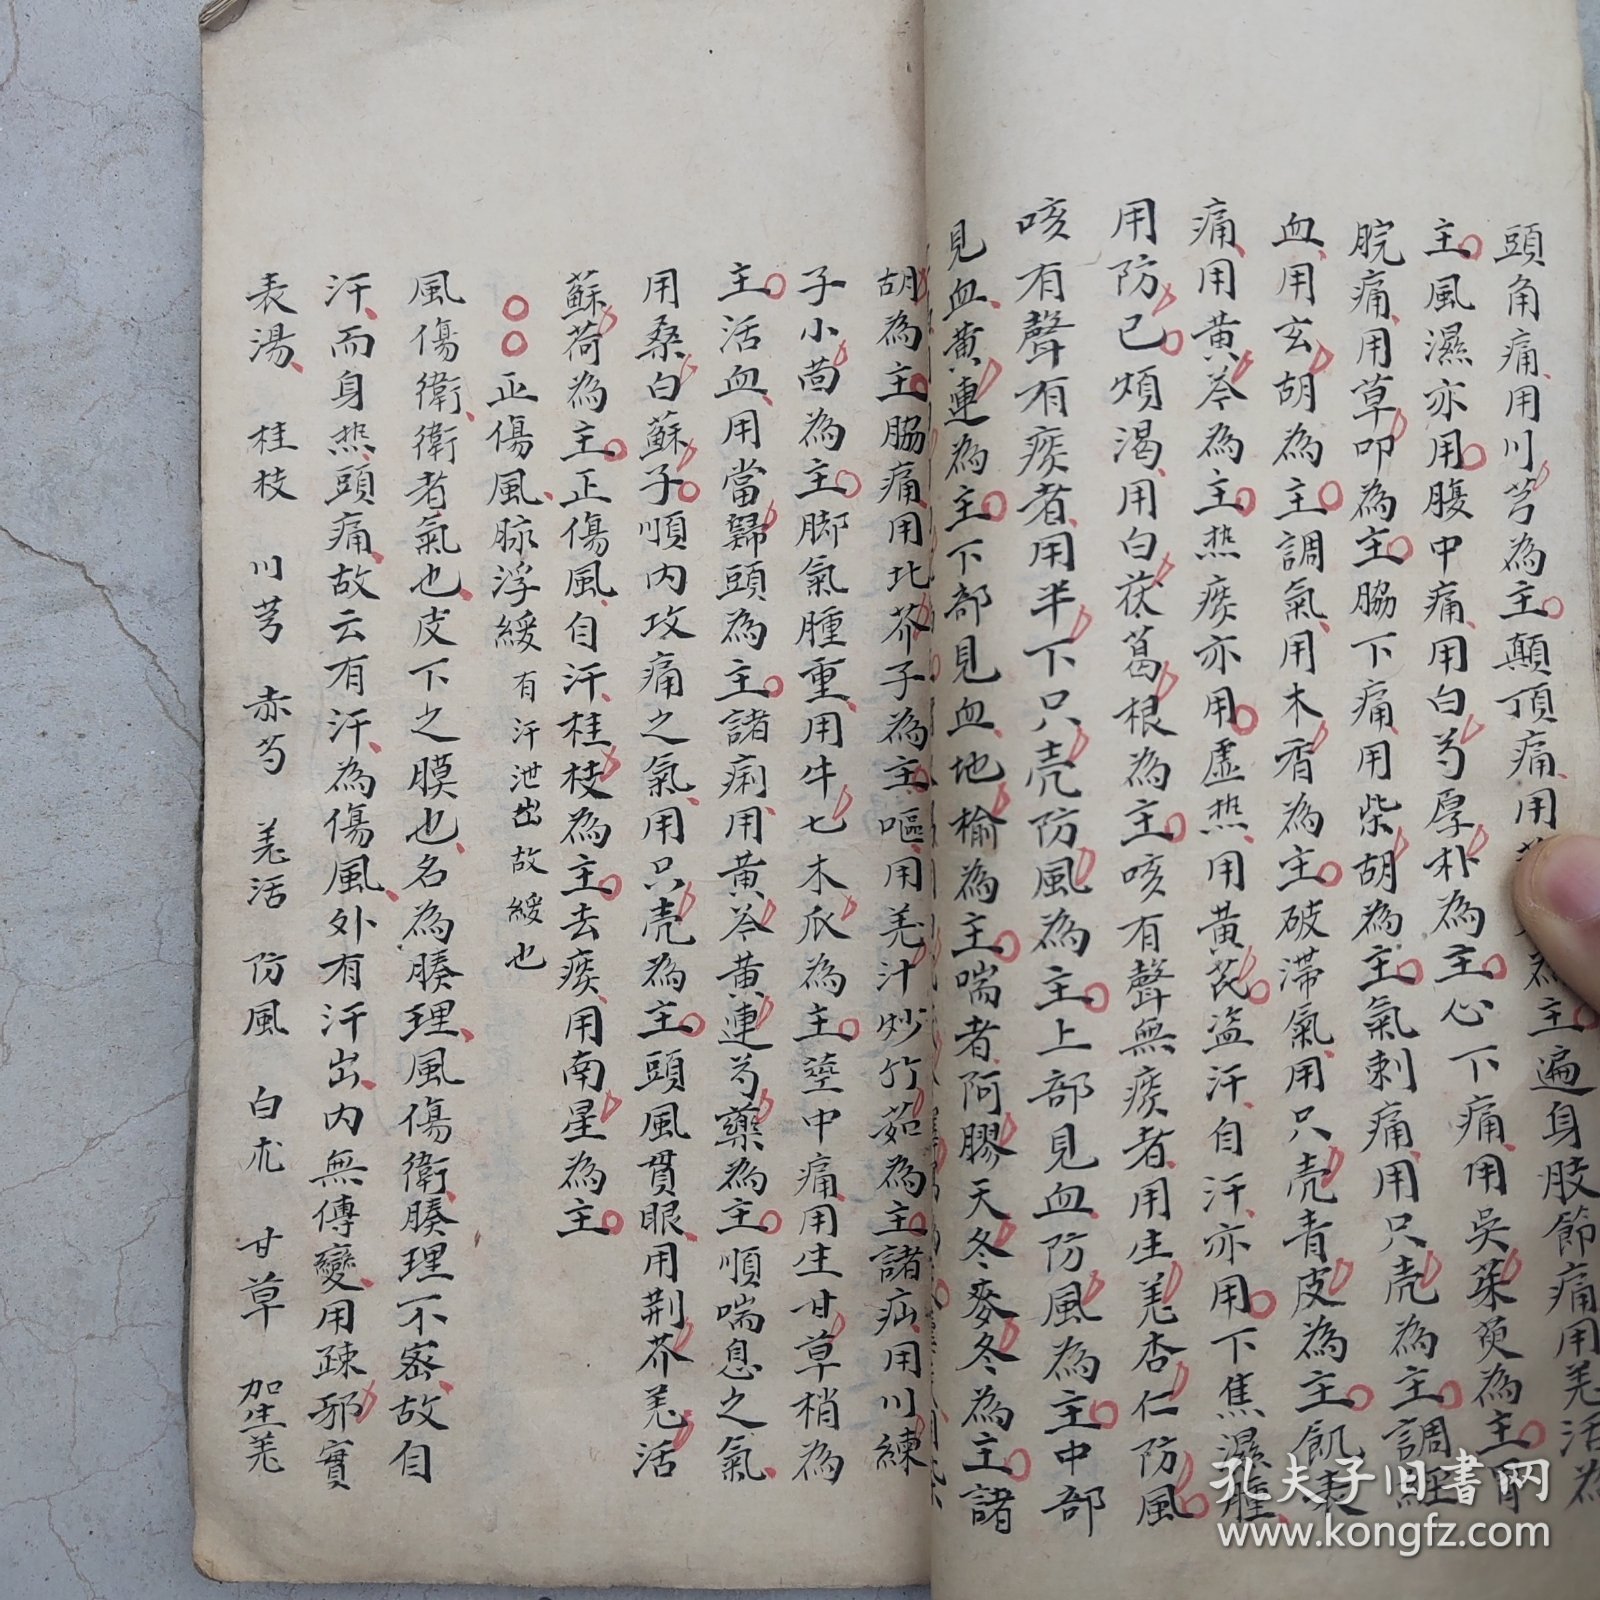 頭角痛用川芎為主顛頂痛用為主遍身肢節痛用羌活為
主風濕亦用腹中痛用白芍厚朴為主心下痛用吳茱萸為主胃
脘痛用草叩為主脇下痛用柴胡為主氣刺痛用只壳為主調經
血用玄胡為主調氣用木香為主破滞氣用只壳青皮為主飢表
痛用黄芩為主热痰亦用虛热用黄芪盗汗自汗亦用下焦濕腫
用防已煩渴用白茯葛根為主咳有聲無痰者用生羌杏仁防風
咳有聲有痰者用半下只壳防風為主上部見血防風為主中部
見血黄連為主下部見血地榆為主喘者阿膠天冬麥冬為主諸
胡為主脇痛用北芥子為主嘔用羌汁炒竹茹為主諸疝用川練
子小茴為主脚氣腫重用牛七木瓜為主莖中痛用生甘草梢為
主活血用當歸頭為主諸痢用黄芩黄連芍藥為主順喘息之氣
用桑白蘇子順内攻痛之氣用只壳為主頭風貫眼用荆芥羌活
蘇荷為主正傷風自汗桂枝為主去痰用南星為主
正傷風脉浮緩 有汗泄出故緩也
風傷衛衛者氣也皮下之膜也名為腠理風傷衛腠理不密故自
汗而身热頭痛故云有汗為傷風外有汗出内無傳變用疎邪實
表湯 桂枝 川芎 赤芍 羌活 防風 白朮 甘草 加生羌
孔夫子旧书网
www.kongfz.com